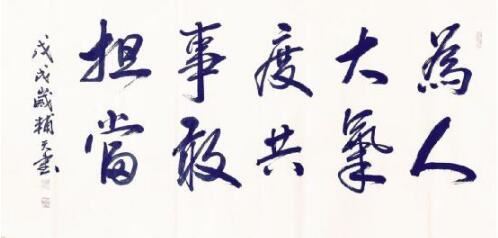 為人
大氣
度共
事敢
担當
戊戌歲輔天書